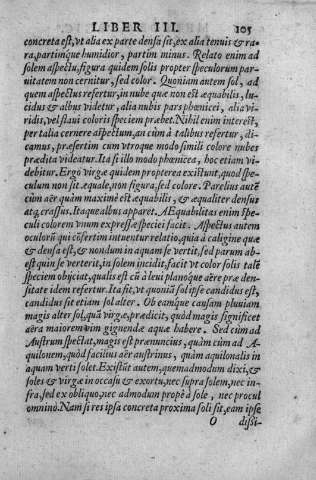 LIBER III. 105
concreta est, vt alia ex parte densa sit, ex alia tenuis & ra-
ra, partimque humidior, partim minus. Relato enim ad
solem aspectu, figura quidem solis propter speculorum par-
uitatem non cernitur, sed color. Quoniam autem sol, ad
quem aspectus refertur, in nube quæ non est æquabilis, lu-
cidus & albus videtur, alia nubis pars phœnicei, alia vi-
ridis, vel flaui coloris speciem præbet. Nihil enim interest,
per talia cernere aspectum, an cùm à talibus refertur, di-
camus, præsertim cum vtroque modo simili colore nubes
prædita videatur. Ita si illo modo phœnicea, hoc etiam vi-
debitur. Ergò virgæ quidem propterea existunt, quod spe-
culum non sit æquale, non figura, sed colore. Parelius autē
cùm aër quàm maximè est æquabilis, & æqualiter densus
atq; crassus. Itaque albus apparet. AEquabilitas enim spe-
culi colorem vnum expressæ speciei facit. Aspectus autem
oculorū qui cōfertim intuentur relatio, quia à caligine quæ
& densa est, & nondum in aquam se vertit, sed parum ab-
est quin se verterit, in solem incidit, facit vt color solis talē
speciem obijciat, qualis est cū à leui planoque aëre præ den-
sitate idem refertur. Ita fit, vt quoniā sol ipse candidus est,
candidus sit etiam sol alter. Ob eamque causam pluuiam
magis alter sol, quā virgæ, prædicit, quòd magis significet
aëra maiorem vim gignendæ aquæ habere. Sed cùm ad
Austrum spectat, magis est prænuncius, quàm cùm ad A-
quilonem, quòd facilius aër austrinus, quàm aquilonalis in
aquam verti solet. Existūt autem, quemadmodum dixi, &
soles & virgæ in occasu & exortu, nec supra solem, nec in-
fra, sed ex obliquo, nec admodum propè à sole, nec procul
omninò. Nam si res ipsa concreta proxima soli sit, eam ipse
O dissi-